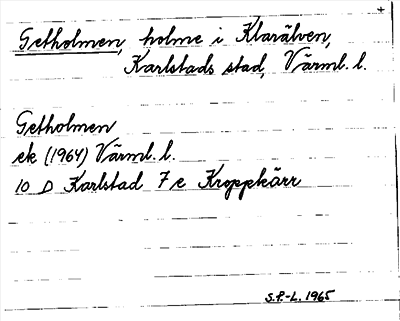 +
Getholmen, holme i Klarälven,
Karlstads stad, Värml. l.
Getholmen
ek (1964) Värml. l.
10 D Karlstad 7 e Kroppkärr
S.F.-L. 1965